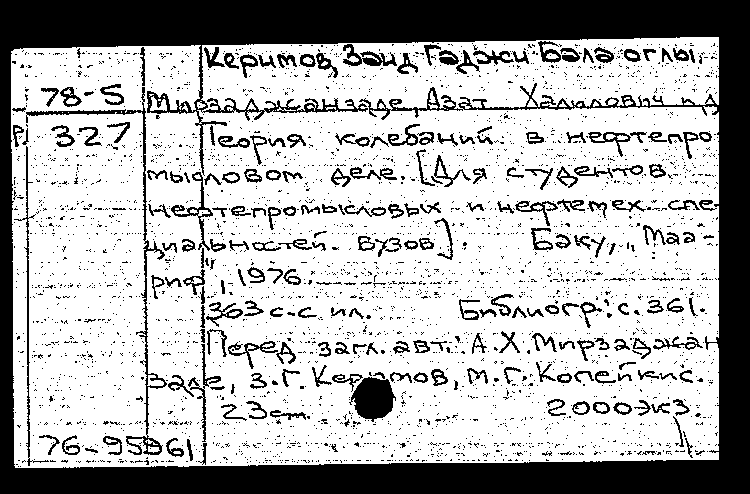 Керимов, Заид Гаджи Бала оглы.
78-5 Мирзаджанзаде, Азат Халилович и д
р. 327 Теория колебаний в нефтепро
мысловом деле. [Для студентов
нефтепромысловых и нефтемех. спе-
циальностей вузов]. Баку, „Маа-
риф", 1976.
363 с. с ил. Библиогр.: с. 361.
Перед загл. авт.: А.Х. Мирзаджан
заде, З.Г. Керимов, М.Г. Копейкис.
23 см. 2000 экз.
76-95961